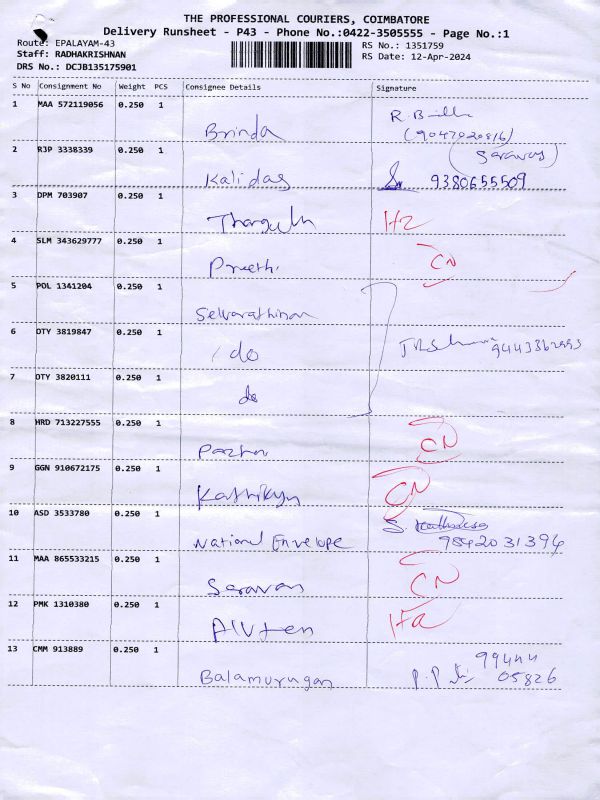 THE PROFESSIONAL COURIERS, COIMBATORE
Delivery Runsheet - P43 - Phone No.:0422-3505555 - Page No.:1
Route: EPALAYAM-43
RS No.: 1351759
Staff: RADHAKRISHNAN
RS Date: 12-Apr-2024
DRS No.: DCJB135175901
S No Consignment No Weight PCS Consignee Details Signature
1 MAA 572119056 0.250 1 Brinda R.
(9047020816)
2 RJP 3338339 0.250 1 Kalidas 9380655509
(Saravan)
3 DPM 703907 0.250 1
4 SLM 343629777 0.250 1 Preethi CN
5 POL 1341204 0.250 1 Selvarathinam
6 OTY 3819847 0.250 1 do
7 OTY 3820111 0.250 1 do
8 HRD 713227555 0.250 1 CN
9 GGN 910672175 0.250 1 CN
10 ASD 3533780 0.250 1 National Envelope S.
9842031394
11 MAA 865533215 0.250 1 Saravan CN
12 PMK 1310380 0.250 1
13 CMM 913889 0.250 1 Balamurugan 99444
05826